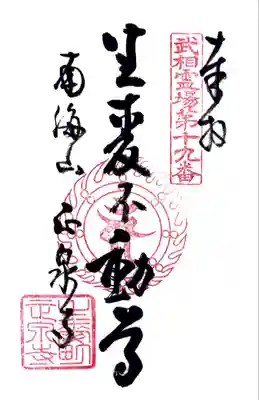 奉拝
武相霊場第十九番
生麦不動尊
南海山
正泉寺